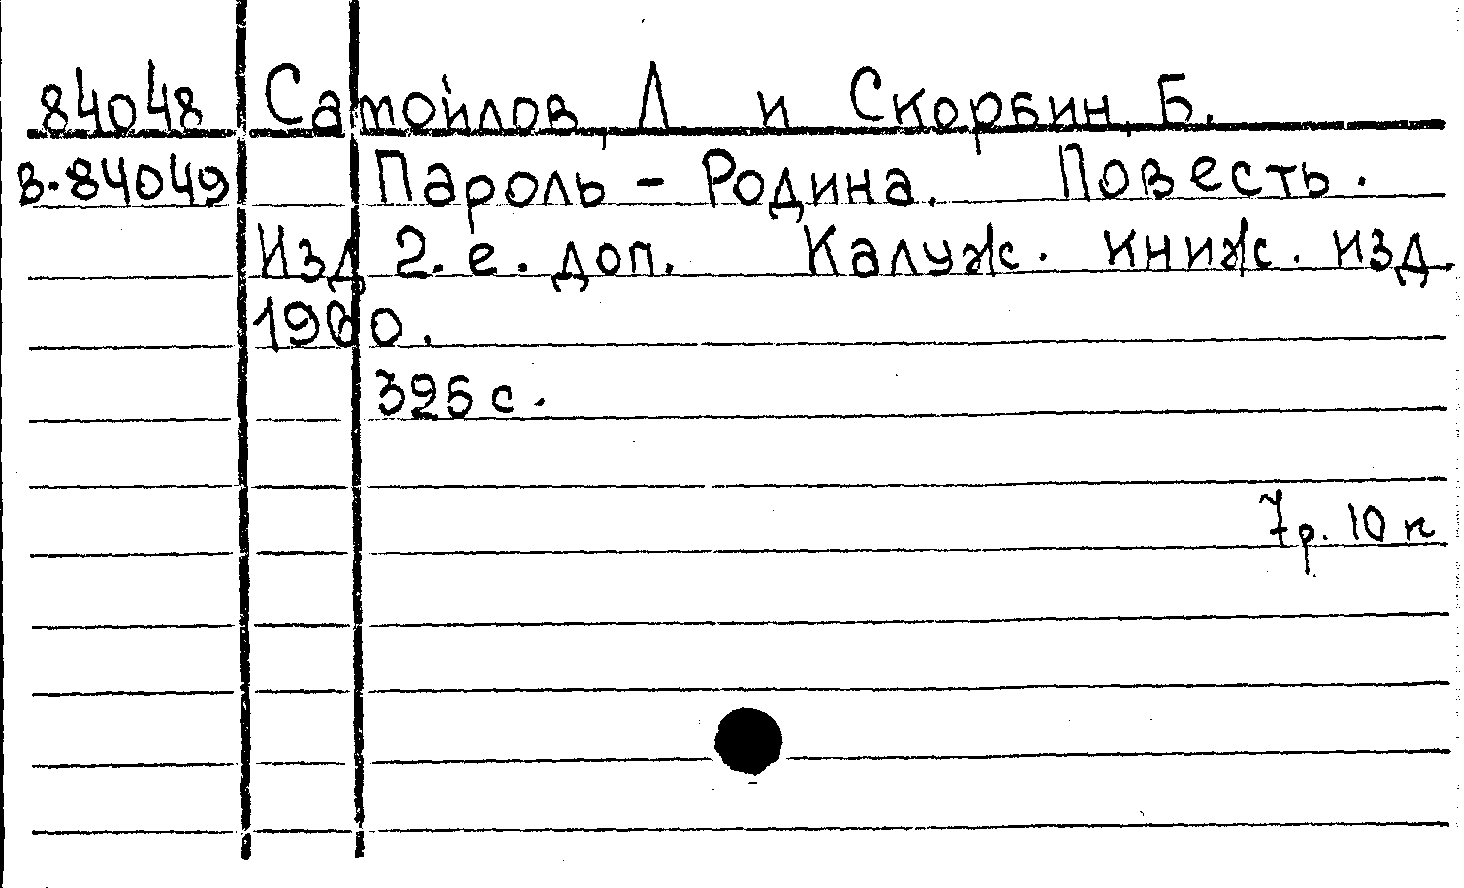 84048 Самойлов, Л и Скорбин, Б.
в-84049 Пароль - Родина. Повесть.
Изд 2. е. доп. Калуж. книж. изд.
1960.
395 с.
7р. 10 к